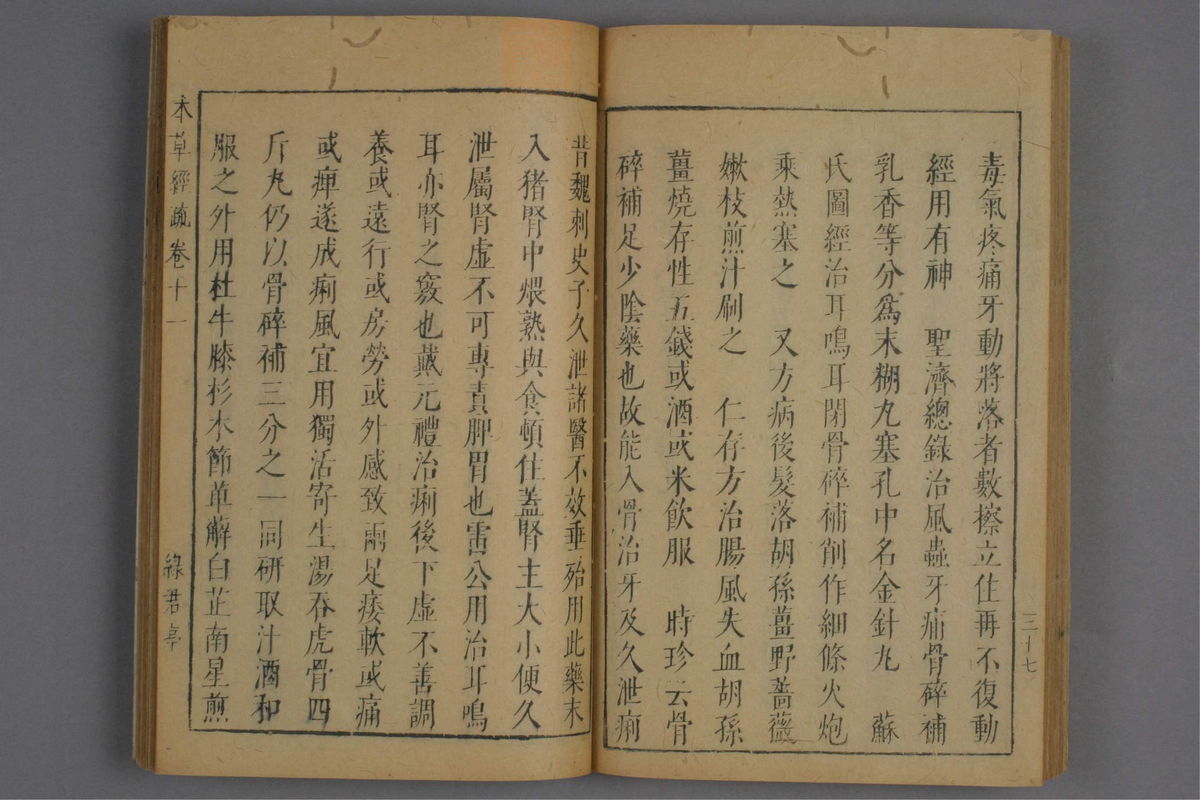 毒氣疼痛牙動將落者數擦立住再不復動
經用有神　聖濟總錄治風蟲牙痛骨碎補
乳香等分爲末糊丸塞孔中名金針丸　蘇
氏圖經治耳鳴耳閉骨碎補削作細條火炮
乘熱塞之　又方病後髮落胡孫薑野薔薇
嫩枝煎汁刷之　仁存方治腸風失血胡孫
薑燒存性五錢或酒或米飲服　時珍云骨
碎補足少陰藥也故能入骨治牙及久泄痢
三十七
昔魏刺史子久泄諸醫不效垂殆用此藥末
入猪腎中煨熟與食頓住蓋腎主大小便久
泄屬腎虛不可專責脾胃也雷公用治耳鳴
耳亦腎之竅也戴元禮治痢後下虛不善調
養或遠行或房勞或外感致兩足痿軟或痛
或痺遂成痢風宜用獨活寄生湯吞虎骨四
斤丸仍以骨碎補三分之一同研取汁酒和
服之外用杜牛膝杉木節萆薢白芷南星煎
本草經疏卷十一
綠君亭